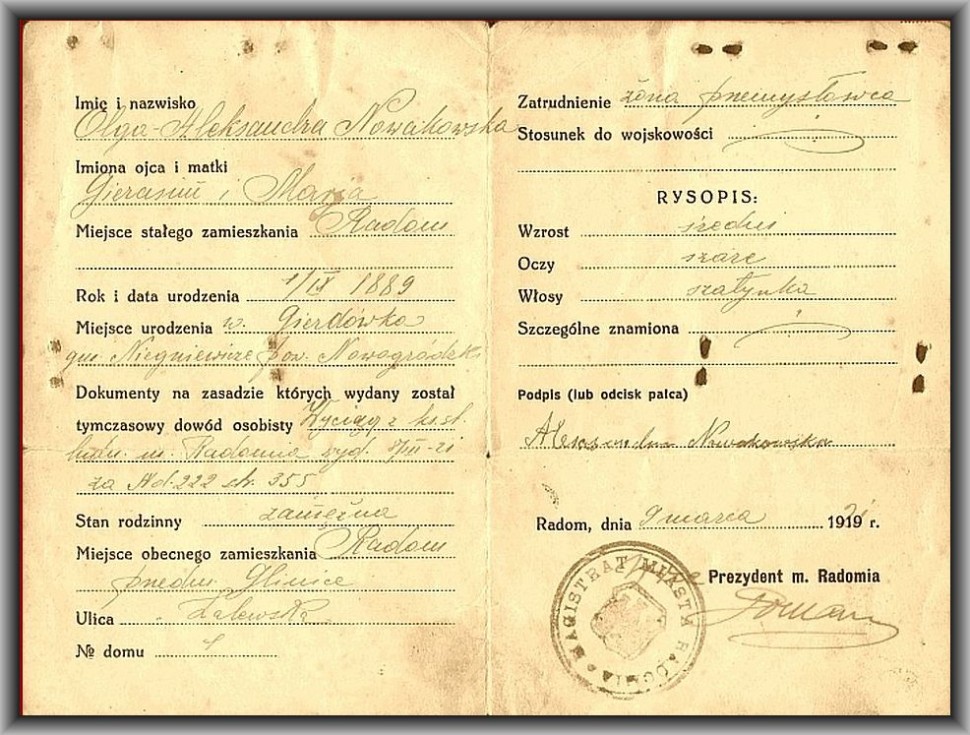 Imię i nazwisko
Olga-Aleksandra Nowakowska
Imiona ojca i matki
i Marja
Miejsce stałego zamieszkania Radom
Rok i data urodzenia 1/IX 1889
Miejsce urodzenia w. Gierdówka
gm. Niegniewicze pow. Nowogródzki
Dokumenty na zasadzie których wydany został
tymczasowy dowód osobisty Wyciąg z ks. st.
ludn. m. Radomia wyd.
za Nd. 222 str. 355
Stan rodzinny zamężna
Miejsce obecnego zamieszkania Radom
przedm. Glinice
Ulica
№ domu
Zatrudnienie żona przemysłowca
Stosunek do wojskowości
RYSOPIS:
Wzrost średni
Oczy szare
Włosy szatynka
Szczególne znamiona
Podpis (lub odcisk palca)
Aleksandra Nowakowska
Radom, dnia 9 marca 1921 r.
MAGISTRAT MIASTA RADOMIA
Prezydent m. Radomia